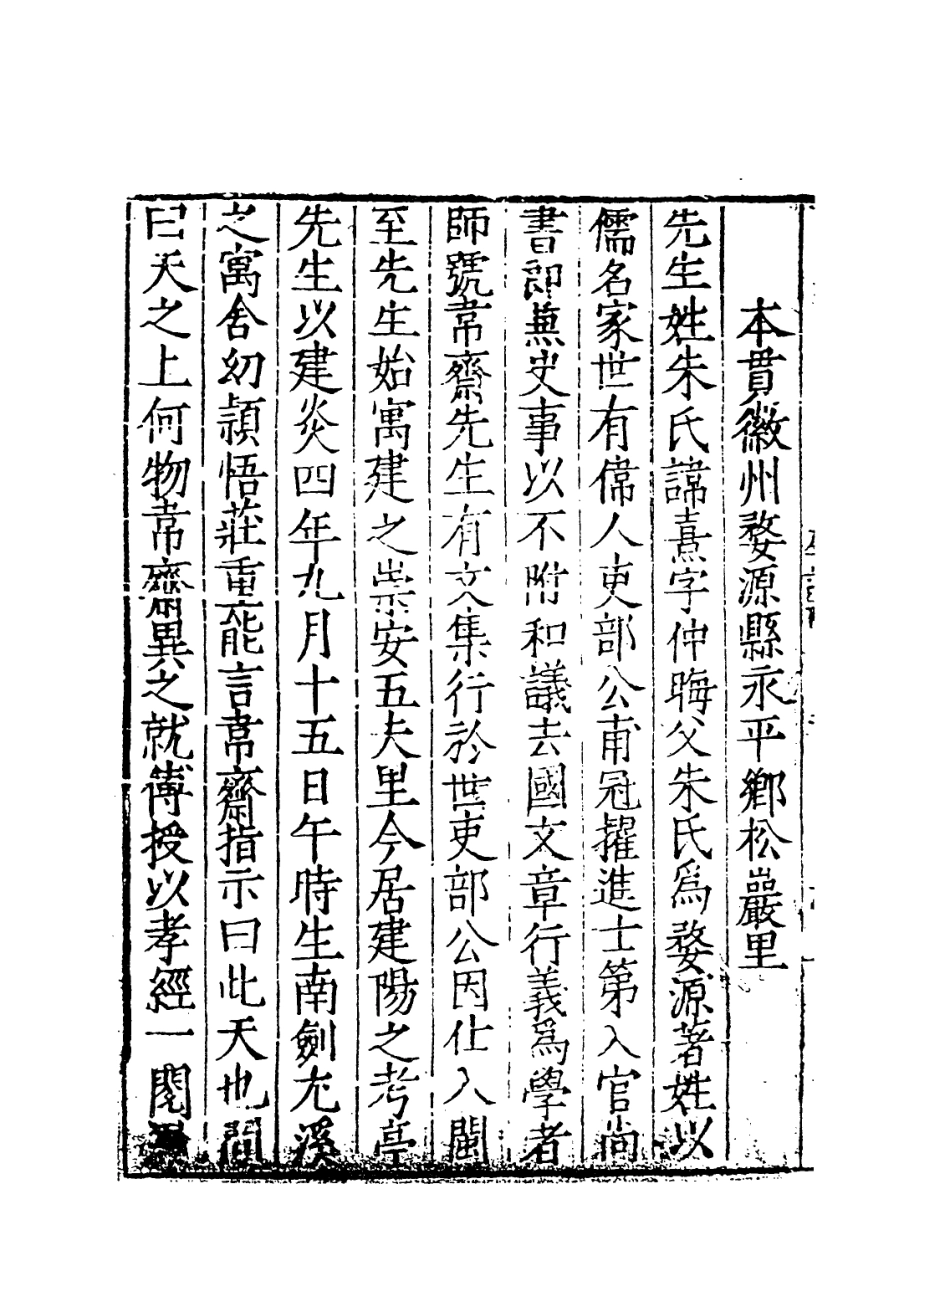 本貫徽州婺源縣永平鄉松巖里
先生姓朱氏諱熹字仲晦父朱氏爲婺源著姓以
儒名家世有偉人吏部公甫冠擢進士第入官尚
書郎兼史事以不附和議去國文章行義爲學者
師號韋齋先生有文集行於世吏部公因仕入閩
至先生始寓建之崇安五夫里今居建陽之考亭
先生以建炎四年九月十五日午時生南劍尤溪
之寓舍幼頴悟莊重能言韋齋指示曰此天也問
曰天之上何物韋齋異之就傅授以孝經一閱